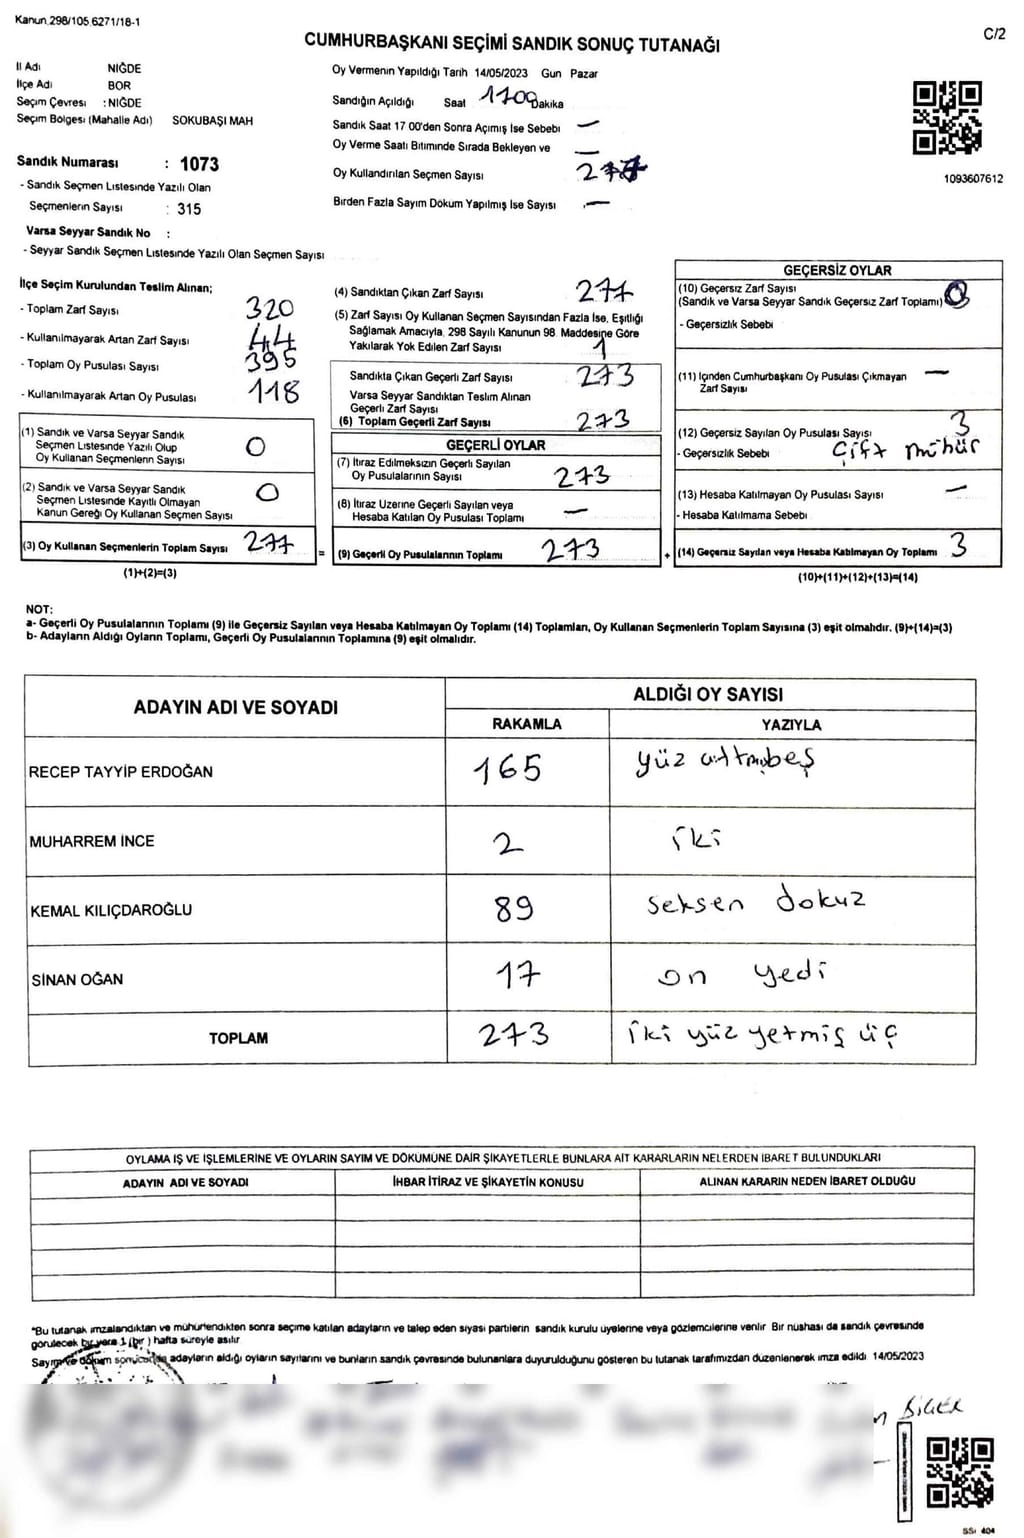 Kanun.298/105.6271/18-1
C/2
CUMHURBAŞKANI SEÇİMİ SANDIK SONUÇ TUTANAĞI
İl Adı NİĞDE
İlçe Adı BOR
Seçim Çevresi : NİĞDE
Seçim Bölgesi (Mahalle Adı) SOKUBAŞI MAH
Sandık Numarası : 1073
- Sandık Seçmen Listesinde Yazılı Olan
Seçmenlerin Sayısı : 315
Varsa Seyyar Sandık No :
- Seyyar Sandık Seçmen Listesinde Yazılı Olan Seçmen Sayısı
Oy Vermenin Yapıldığı Tarih 14/05/2023 Gun Pazar
Sandığın Açıldığı Saat 1700 Dakika
Sandık Saat 17 00'den Sonra Açımış İse Sebebi —
Oy Verme Saati Bitiminde Sırada Bekleyen ve —
Oy Kullandırılan Seçmen Sayısı 277
Birden Fazla Sayım Dokum Yapılmış İse Sayısı —
1093607612
İlçe Seçim Kurulundan Teslim Alınan;
- Toplam Zarf Sayısı 320
- Kullanılmayarak Artan Zarf Sayısı 44
- Toplam Oy Pusulası Sayısı 395
- Kullanılmayarak Artan Oy Pusulası 118
(1) Sandık ve Varsa Seyyar Sandık
Seçmen Listesinde Yazılı Olup
Oy Kullanan Seçmenlerin Sayısı 0
(2) Sandık ve Varsa Seyyar Sandık
Seçmen Listesinde Kayıtlı Olmayan
Kanun Gereği Oy Kullanan Seçmen Sayısı 0
(3) Oy Kullanan Seçmenlerin Toplam Sayısı 277 =
(1)+(2)=(3)
(4) Sandıktan Çıkan Zarf Sayısı 277
(5) Zarf Sayısı Oy Kullanan Seçmen Sayısından Fazla İse, Eşitliği
Sağlamak Amacıyla, 298 Sayılı Kanunun 98. Maddesine Göre
Yakılarak Yok Edilen Zarf Sayısı 1
Sandıkta Çıkan Geçerli Zarf Sayısı 273
Varsa Seyyar Sandıktan Teslim Alınan
Geçerli Zarf Sayısı
(6) Toplam Geçerli Zarf Sayısı 273
GEÇERLİ OYLAR
(7) İtiraz Edilmeksizin Geçerli Sayılan
Oy Pusulalarının Sayısı 273
(8) İtiraz Uzerine Geçerli Sayılan veya
Hesaba Katılan Oy Pusulası Toplamı —
(9) Geçerli Oy Pusulalarının Toplamı 273 +
GEÇERSİZ OYLAR
(10) Geçersiz Zarf Sayısı
(Sandık ve Varsa Seyyar Sandık Geçersiz Zarf Toplamı) 0
- Geçersizlik Sebebi
(11) İçinden Cumhurbaşkanı Oy Pusulası Çıkmayan —
Zarf Sayısı
(12) Geçersiz Sayılan Oy Pusulası Sayısı 3
- Geçersizlik Sebebi Çift mühür
(13) Hesaba Katılmayan Oy Pusulası Sayısı —
- Hesaba Katılmama Sebebi
(14) Geçersiz Sayılan veya Hesaba Katılmayan Oy Toplamı 3
(10)+(11)+(12)+(13)=(14)
NOT:
a- Geçerli Oy Pusulalarının Toplamı (9) ile Geçersiz Sayılan veya Hesaba Katılmayan Oy Toplamı (14) Toplamları, Oy Kullanan Seçmenlerin Toplam Sayısına (3) eşit olmalıdır. (9)+(14)=(3)
b- Adayların Aldığı Oyların Toplamı, Geçerli Oy Pusulalarının Toplamına (9) eşit olmalıdır.
ADAYIN ADI VE SOYADI ALDIĞI OY SAYISI
RAKAMLA YAZIYLA
RECEP TAYYİP ERDOĞAN 165 yüz altmışbeş
MUHARREM İNCE 2 iki
KEMAL KILIÇDAROĞLU 89 seksen dokuz
SİNAN OĞAN 17 on yedi
TOPLAM 273 iki yüz yetmiş üç
OYLAMA İŞ VE İŞLEMLERİNE VE OYLARIN SAYIM VE DÖKÜMÜNE DAİR ŞİKAYETLERLE BUNLARA AİT KARARLARIN NELERDEN İBARET BULUNDUKLARI
ADAYIN ADI VE SOYADI İHBAR İTİRAZ VE ŞİKAYETİN KONUSU ALINAN KARARIN NEDEN İBARET OLDUĞU
*Bu tutanak imzalandıktan ve mühürlendikten sonra seçime katılan adayların ve talep eden siyasi partilerin sandık kurulu üyelerine veya gözlemcilerine verilir Bir nüshası da sandık çevresinde
görülecek bir yere 1 (bir) hafta süreyle asılır
Sayım ve döküm sonucunda adayların aldığı oyların sayılarını ve bunların sandık çevresinde bulunanlara duyurulduğunu gösteren bu tutanak tarafımızdan düzenlenerek imza edildi 14/05/2023
SSi 404